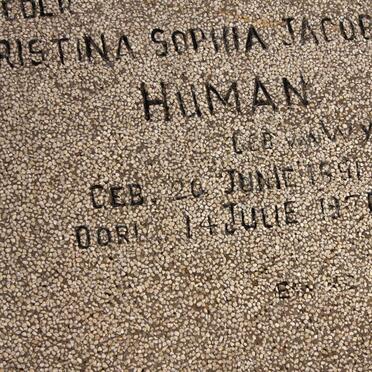 RISTINA SOPHIA JACOB
HUMAN
GEB.
GEB. 26 JUNIE 1891
OORL. 14 JULIE 197